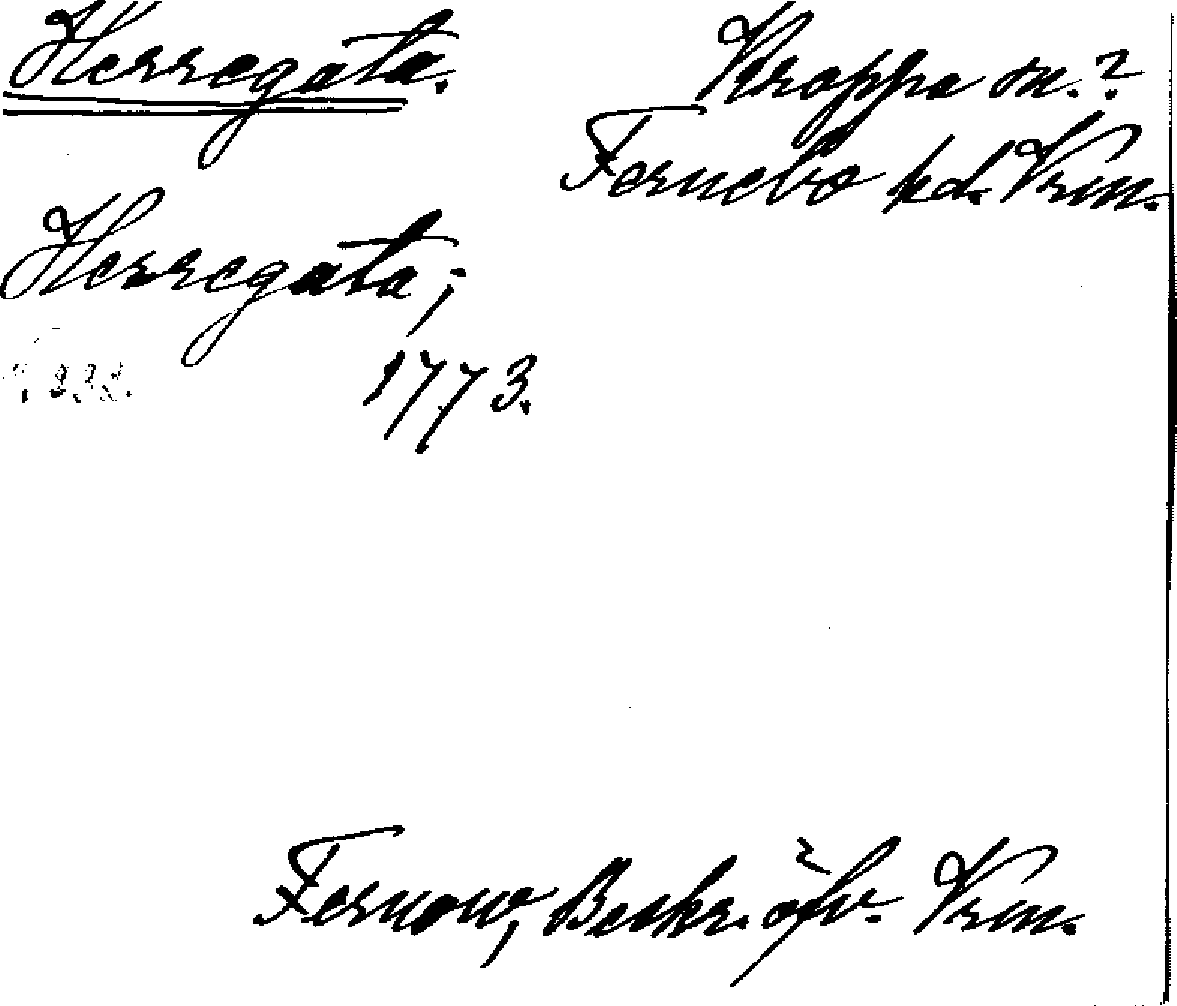 Herregåta.
Kroppa sn.?
Fernebo hd. Vrm.
Herregata;
1773.
Fernow, Beskr. öfv. Vrm.